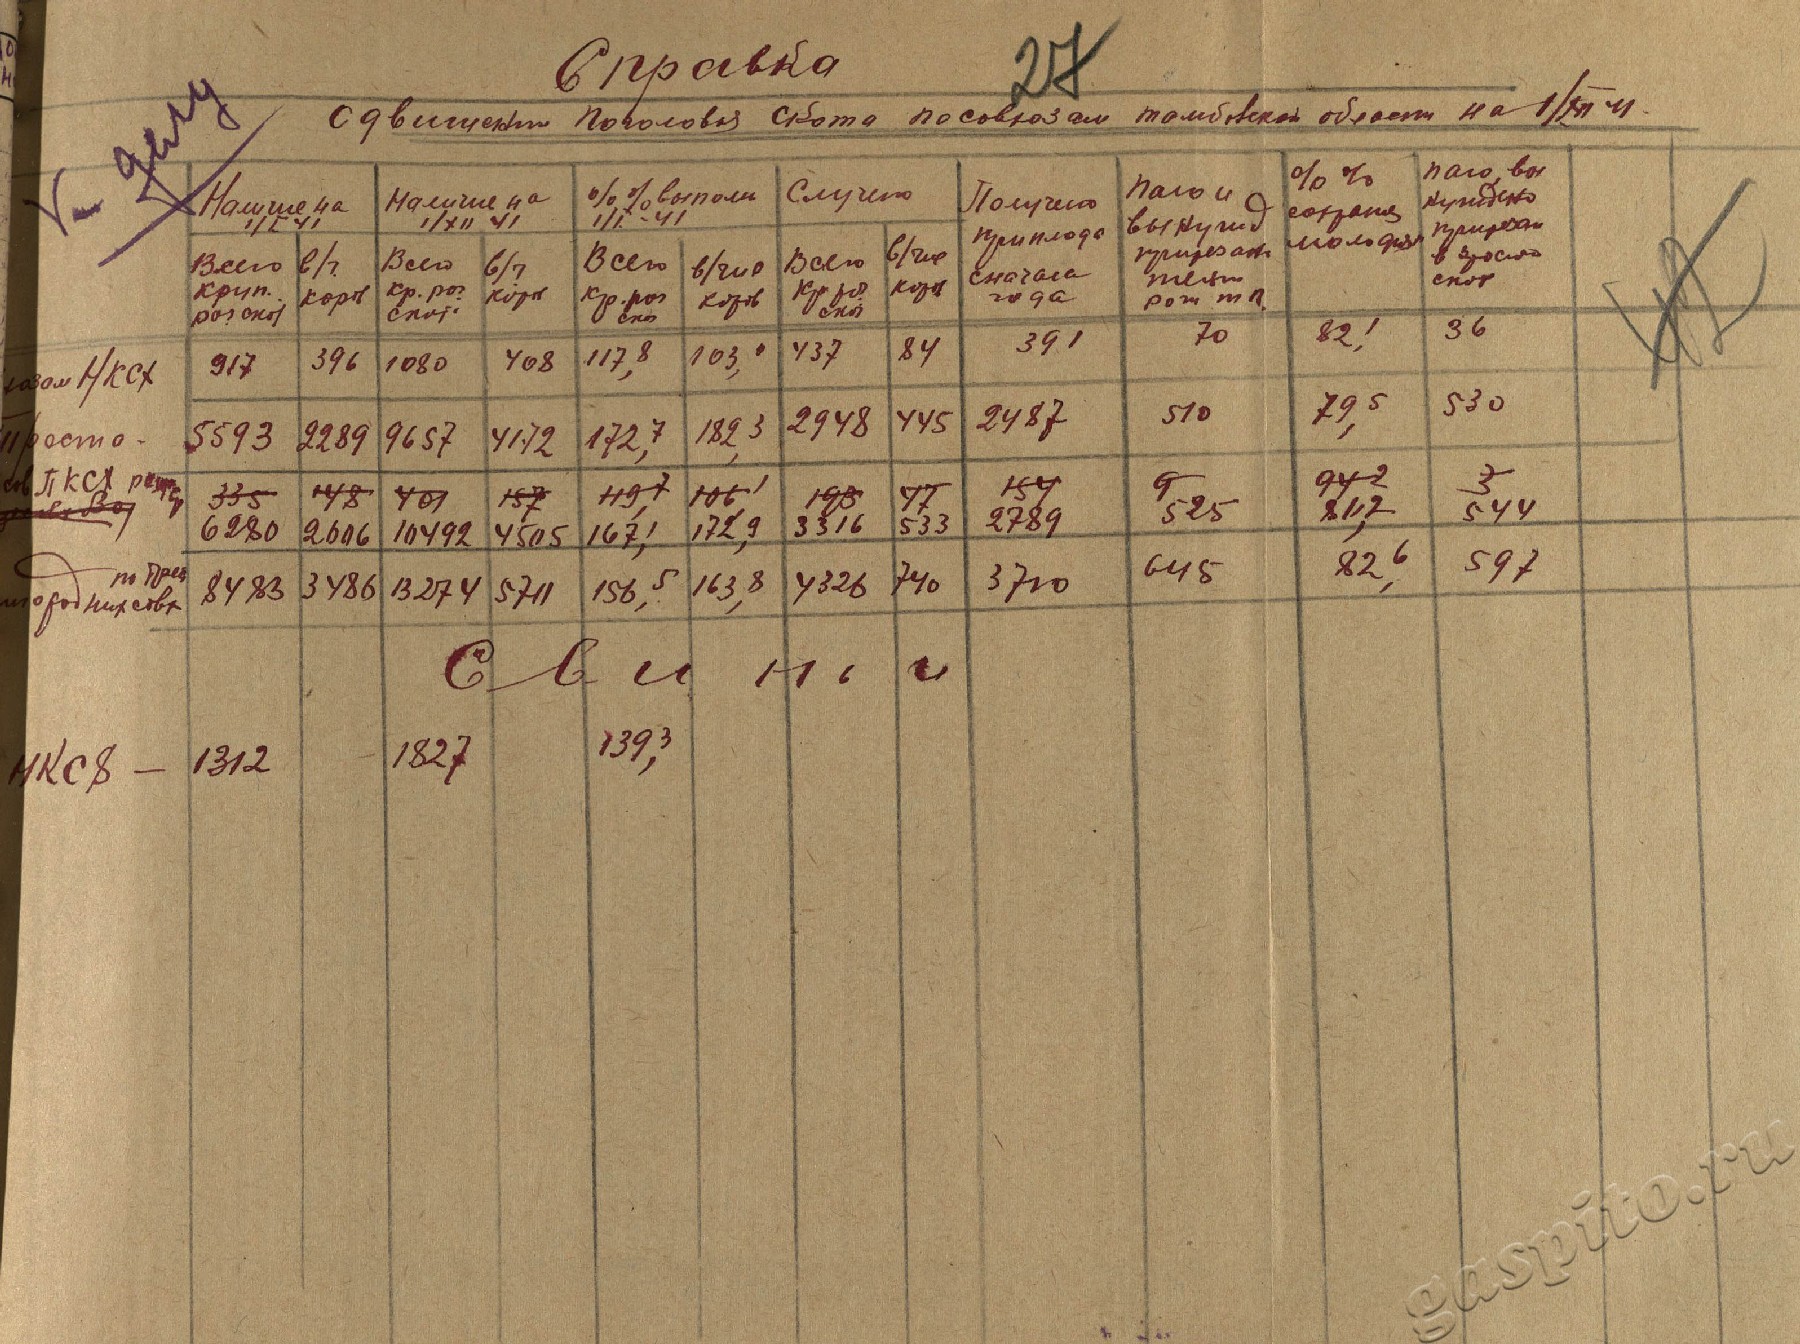 Справка
27
К делу
О движении поголовья скота по совхозам Тамбовской области на 1/XII 41.
Наличие на 1/I-41 Наличие на 1/XII 41 % % выполн 1/I-41 Случено Получено приплода сначала года Пало и вынужд прирезан телят рож т.г. % % сохран молодня Пало, вы нуждено прирезан взросло скот
Всего круп. рог скот в/ч коров Всего кр. рог скот. в/ч коров Всего кр. рог ско в/чис коров Всего кр. рог ско в/чис коров
хозам НКСХ 917 396 1080 408 117,8 103,0 437 84 391 70 82,1 36
Просто- 5593 2289 9657 4172 172,7 182,3 2948 445 2487 510 79,5 530
335 148 401 157 119,7 106,1 193 77 154 9 94,2 3
6280 2006 10492 4505 167,1 172,9 3316 533 2789 525 81,2 544
8483 3486 13274 5711 156,5 163,8 4326 740 3710 645 82,6 597
Свиньи
НКСХ — 1312 1827 139,3
gaspito.ru